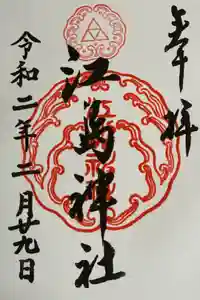 奉拝
江島神社
令和二年二月廿九日